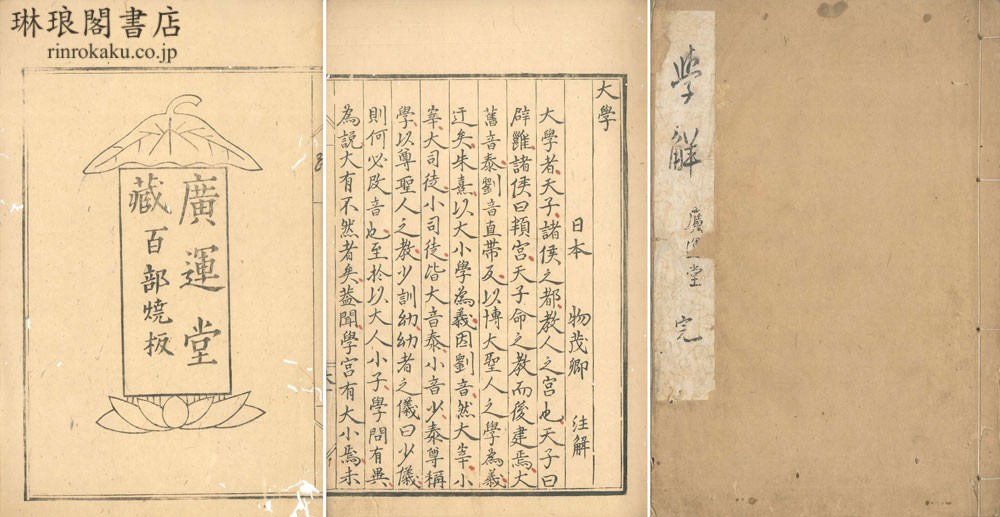 琳琅閣書店
rinrokaku.co.jp
廣運堂
藏百部燒板
大學
日本 物茂卿 注解
大學者天子諸侯之都教人之宮也天子曰
辟雝諸侯曰頖宮天子命之教而後建焉大
舊音泰劉音直帶反以博大聖人之學為義
迂矣朱熹以大小學為義因劉音然大宰小
宰大司徒小司徒皆大音泰小音少泰尊稱
學以尊聖人之教少訓幼幼者之儀曰少儀
則何必改音也至於以大人小子學問有異
為說大有不然者矣蓋聞學宮有大小焉未
学解 廣運堂 完